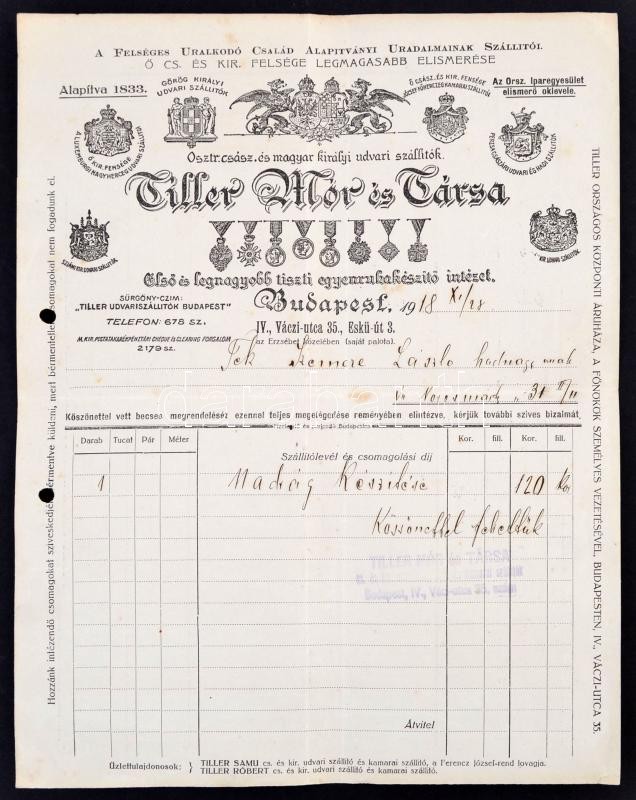 A Felséges Uralkodó Család Alapitványi Uradalmainak Szállitói.
Ő CS. ÉS KIR. FELSÉGE LEGMAGASABB ELISMERÉSE
Alapítva 1833.
GÖRÖG KIRÁLYI UDVARI SZÁLLITÓK
Ő CSÁSZ. ÉS KIR. FENSÉGE JÓZSEF FŐHERCZEG KAMARAI SZÁLLITÓI.
Az Orsz. Iparegyesület
elismerő oklevele.
Ő KIR. FENSÉGE
A LUXENBURGI NAGYHERCEG UDVARI SZÁLLITÓI
UDVARI ÉS HADI SZÁLLITÓK
Osztr. csász. és magyar királyi udvari szállitók.
Tiller Mór és Társa
SZERB KIR. UDVARI SZÁLLITÓK.
KIR. UDVARI SZÁLLITÓK.
Első és legnagyobb tiszti egyenruhakészitő intézet.
SÜRGÖNY-CZIM:
„TILLER UDVARISZÁLLITÓK BUDAPEST"
TELEFON: 678 SZ.
M. KIR. POSTATAKARÉKPÉNZTÁRI CHEQUE & CLEARING FORGALOM
2179 SZ.
Budapest, 1918 XI/28
IV., Váczi-utca 35., Eskü-út 3.
az Erzsébet híd közelében (saját palota).
Tek Szemere László hadnagy urnak
Köszönettel vett becses megrendelését ezennel teljes megelégedése reményében elintézve, kérjük további szives bizalmát.
Darab Tucat Pár Méter Kor. fill. Kor. fill.
Szállítólevél és csomagolási díj
1 Nadrág Készitése 120 Kor
Köszönettel felvettük
TILLER MÓR és TÁRSA
Budapest, IV., Váci-utca 35. szám
Átvitel
Üzlettulajdonosok: } TILLER SAMU cs. és kir. udvari szállító és kamarai szállító, a Ferencz József-rend lovagja.
TILLER RÓBERT cs. és kir. udvari szállító és kamarai szállító.
Hozzánk intézendő csomagokat sziveskedjék bérmentve küldeni, mert bérmentetlen csomagokat nem fogadunk el.
TILLER ORSZÁGOS KÖZPONTI ÁRUHÁZA, A FŐNÖKÖK SZEMÉLYES VEZETÉSÉVEL, BUDAPESTEN, IV., VÁCZI-UTCA 35.